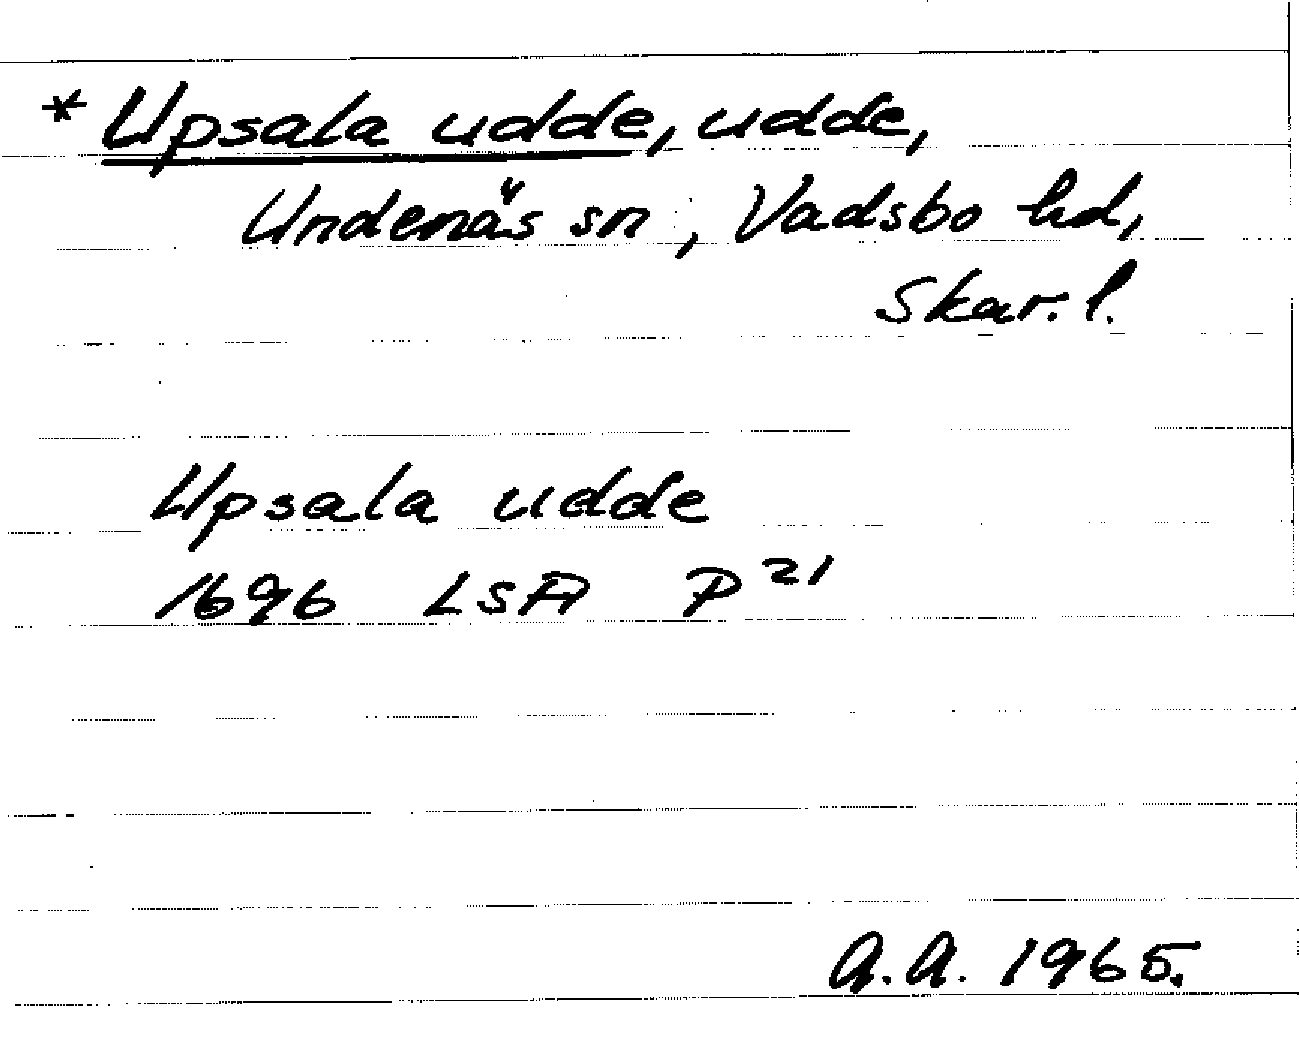 * Upsala udde, udde,
Undenäs sn, Vadsbo hd,
Skar. l.
Upsala udde
1696 LSA P 21
A.A. 1965.